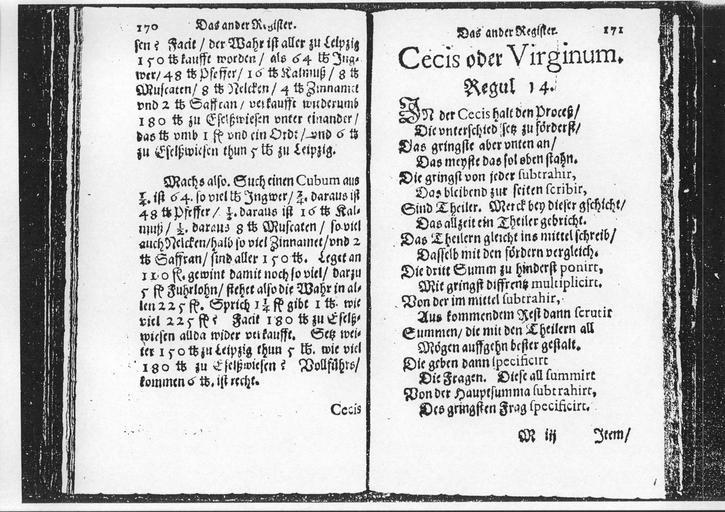 170 Das ander Register.
sen? Facit / der Wahr ist aller zu Leipzig
150 ℔ kaufft worden / als 64 ℔ Ing-
wer / 48 ℔ Pfeffer / 16 ℔ Kalmuß / 8 ℔
Muscaten / 8 ℔ Nelcken / 4 ℔ Zinnamet
vnd 2 ℔ Saffran / verkaufft wiederumb
180 ℔ zu Eselßwiesen vnter einander /
das ℔ vmb 1 fl. vnd ein Ort / vnd 6 ℔
zu Eselßwiesen thun 5 ℔ zu Leipzig.
Machs also. Such einen Cubum aus
¼. ist 64. so viel ℔ Ingwer / ¾. daraus ist
48 ℔ Pfeffer / daraus ist 16 ℔ Kal-
muß / daraus 8 ℔ Muscaten / so viel
auch Nelcken / halb so viel Zinnamet / vnd 2
℔ Saffran / sind aller 150 ℔. Leget an
110 fl. gewint damit noch so viel / darzu
5 fl. Fuhrlohn / stehet also die Wahr in al-
len 225 fl. Sprich 1¼ fl. gibt 1 ℔. wie
viel 225 fl.? Facit 180 ℔ zu Eselß-
wiesen allda wider verkaufft. Setz wei-
ter 150 ℔ zu Leipzig thun 5 ℔. wie viel
180 ℔ zu Eselßwiesen? Vollführs /
kommen 6 ℔. ist recht.
Cecis
Das ander Register. 171
Cecis oder Virginum.
Regul 14.
IN der Cecis halt den Proceß /
Die vnterschied setz zu förderst /
Das gringste aber vnten an /
Das meyste das sol oben stahn.
Die gringst von jeder subtrahir,
Das bleibend zur seiten scribir,
Sind Theiler. Merck bey dieser gschicht /
Das allzeit ein Theiler gebricht.
Das Theilern gleicht ins mittel schreib /
Dasselb mit den fördern vergleich.
Die dritt Summ zu hinderst ponirt,
Mit gringst diffrentz multiplicirt.
Von der im mittel subtrahir,
Aus kommendem Rest dann scrutir
Summen / die mit den Theilern all
Mögen auffgehn bester gestalt.
Die geben dann specificirt
Die Fragen. Diese all summirt
Von der Hauptsumma subtrahirt,
Des gringsten Frag specificirt.
M iij Item /